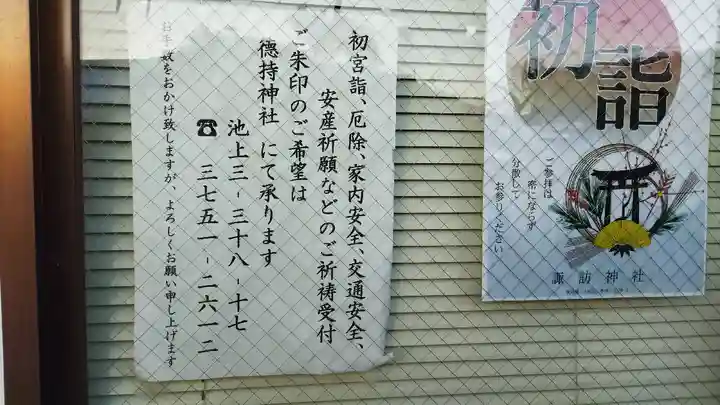 初詣
ご参拝は
密にならず
分散して
お参りください
諏訪神社
初宮詣、厄除、家内安全、交通安全、
安産祈願などのご祈祷受付
ご朱印のご希望は
德持神社 にて承ります
池上三-三十八-十七
☎ 三七五一-二六一二
お手数をおかけ致しますが、よろしくお願い申し上げます